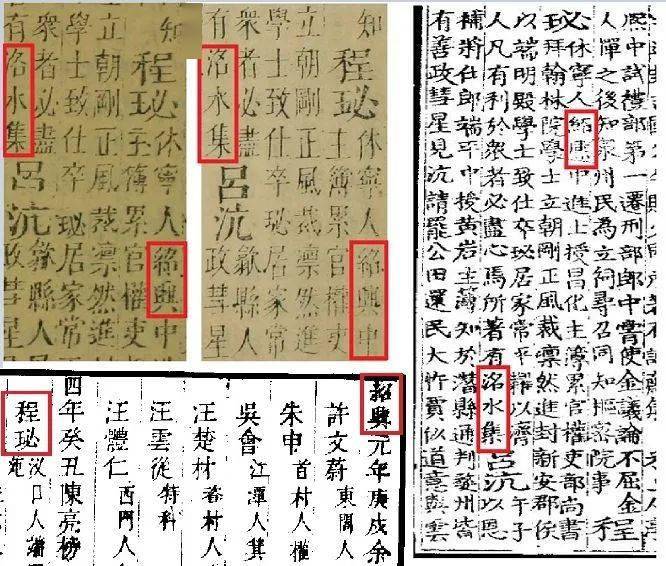 知
程珌休寧人紹興中
主簿累官權吏
立朝剛正風裁凛然進
學士致仕卒珌居家常
衆者必盡
有洛水集
呂沆歙縣人
政彗星
知
程珌休寧人紹興中
主簿累官權吏
立朝剛正風裁凛然進
學士致仕卒珌居家常
衆者必盡
有洛水集
呂沆歙縣人
政彗星
熙中試禮部第一遷刑部郎中嘗使金議論不屈金
人憚之後知泉州民為立祠尋召同知樞密院事程
珌休寧人紹熙中進士授昌化主簿累官權吏部尚書
拜翰林院學士立朝剛正風裁凛然進封新安郡侯
以端明殿學士致仕卒珌居家常平糴以濟
人凡有利於衆者必盡心焉所著有洺水集呂沆午子以恩
補將仕郎端平中授黃岩主簿知於潛縣通判婺州皆
有善政彗星見沆請罷公田還民大忤賈似道意與雲
紹熙元年庚戌余
許文蔚東閣人
朱申首村人權
吳會江潭人箕
汪楚材村人
汪雲從特科
汪體仁西門人
四年癸丑陳亮榜
程珌汊口人端